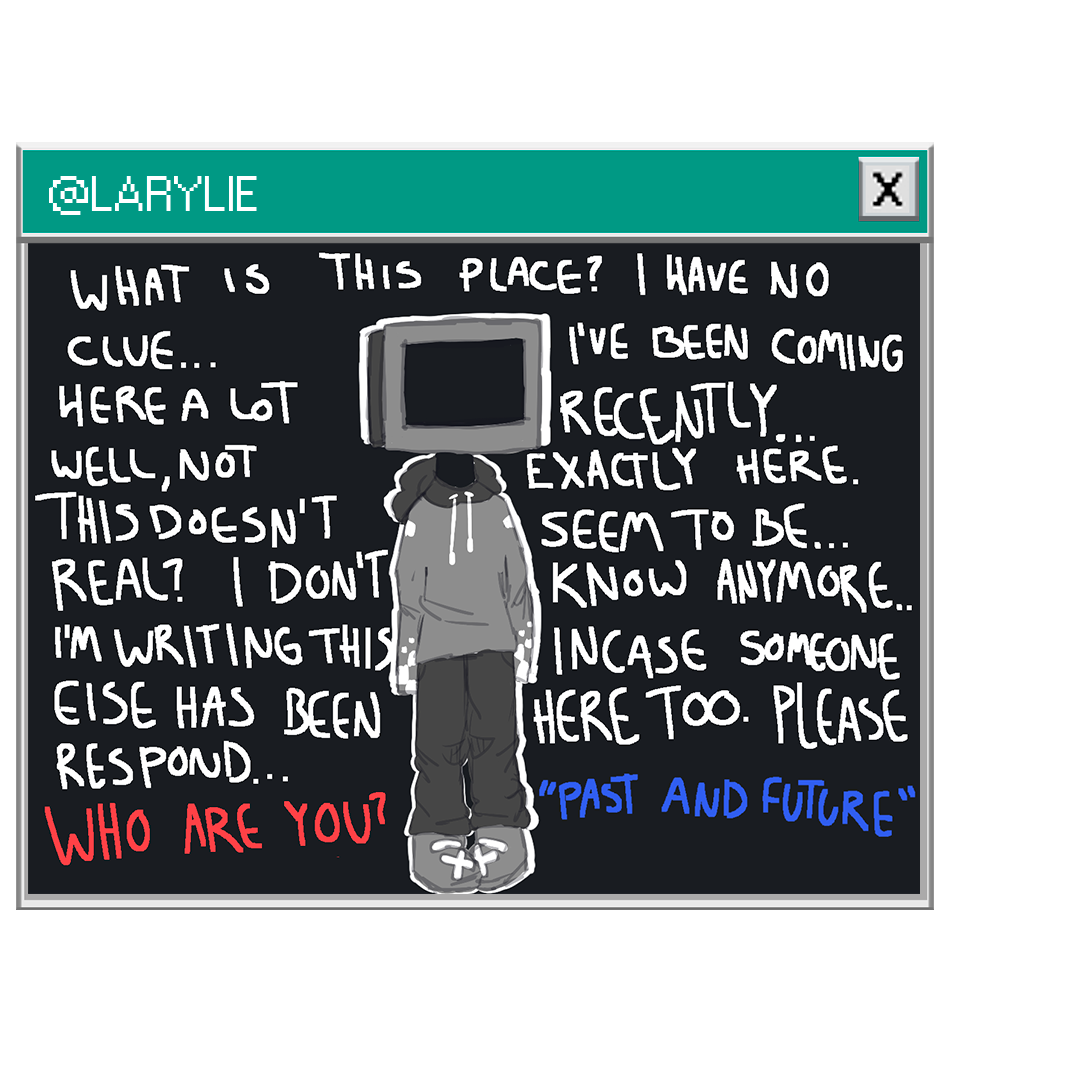 @LARYLIE
X
WHAT IS THIS PLACE? I HAVE NO
CLUE... I'VE BEEN COMING
HERE A LOT RECENTLY...
WELL, NOT EXACTLY HERE.
THIS DOESN'T SEEM TO BE...
REAL? I DON'T KNOW ANYMORE..
I'M WRITING THIS INCASE SOMEONE
ELSE HAS BEEN HERE TOO. PLEASE
RESPOND...
WHO ARE YOU? "PAST AND FUTURE"